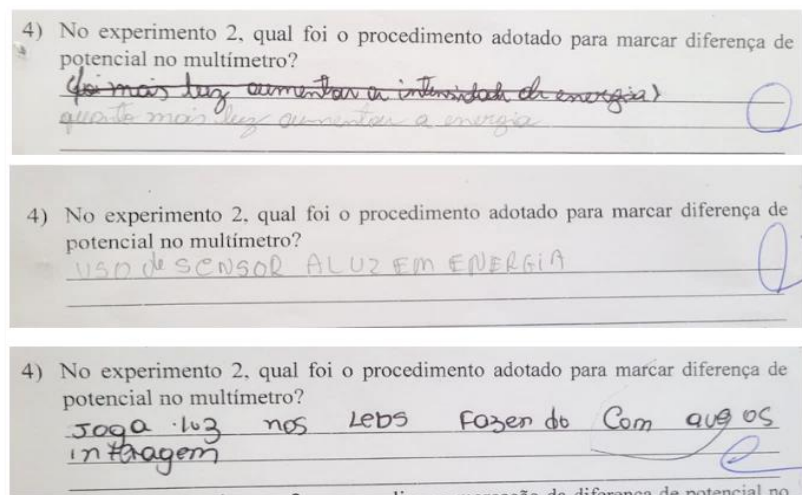 4) No experimento 2, qual foi o procedimento adotado para marcar diferença de
potencial no multímetro?
(foi mais luz aumentar a intensidade de energia)
quanto mais luz aumentou a energia
4) No experimento 2, qual foi o procedimento adotado para marcar diferença de
potencial no multímetro?
USO de SENSOR A LUZ EM ENERGIA
4) No experimento 2, qual foi o procedimento adotado para marcar diferença de
potencial no multímetro?
Joga luz nos Leds Fazendo Com que os
interagem
diferença de potencial no